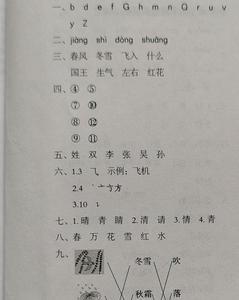 一、b d e f G h m n Q r u v
y Z
二、jiàng shì dòng shuāng
三、春风 冬雪 飞入 什么
国王 生气 左右 红花
四、④ ⑤
⑦ ⑩
⑧ ⑫
⑨ ⑪
五、姓 双 李 张 吴 孙
六、1.3 ⺄ 示例：飞机
2.4 方
3.10
七、1.晴 青 睛 2.清 请 3.情 4.青
八、春 万 花 雪 红 水
九、
冬雪 吹
秋霜 落